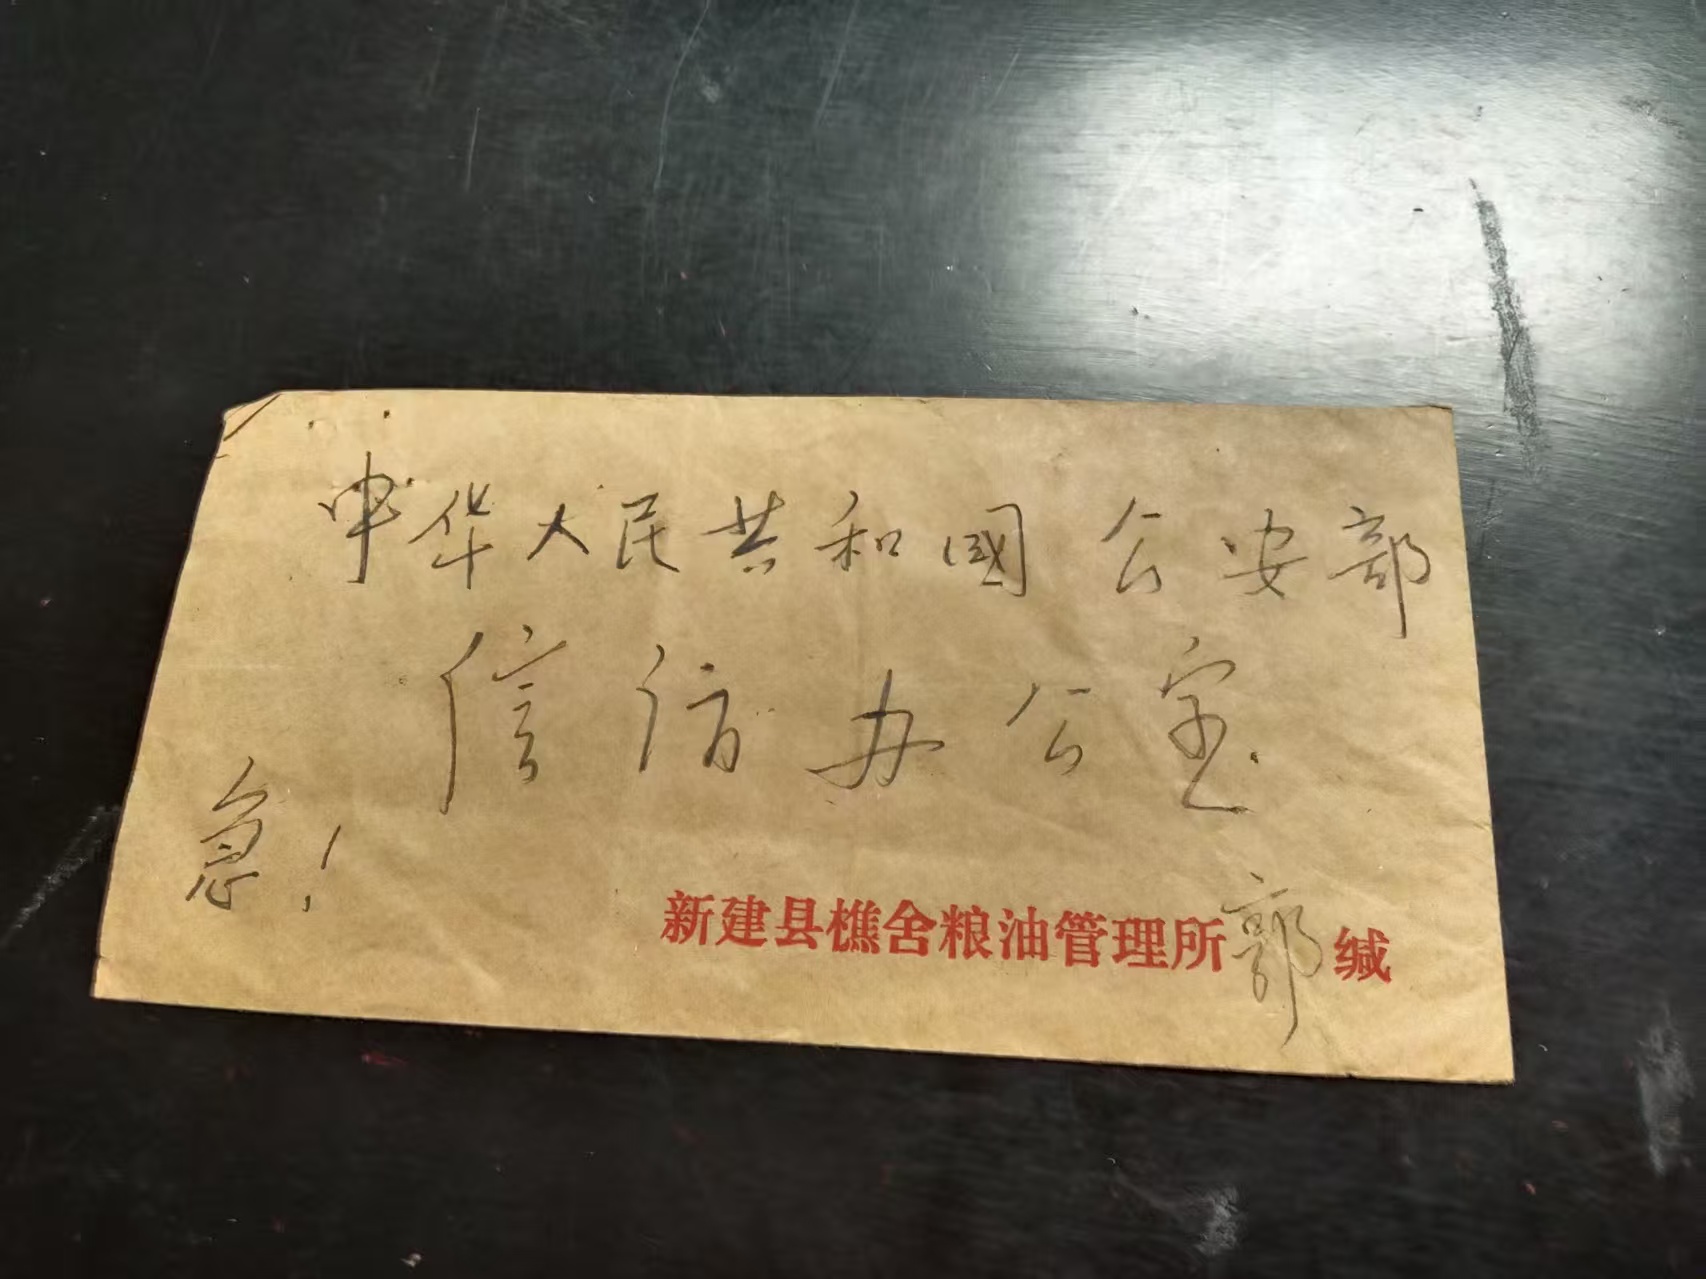 中华人民共和國 公安部
信访办公室
急!
新建县樵舍粮油管理所郭缄